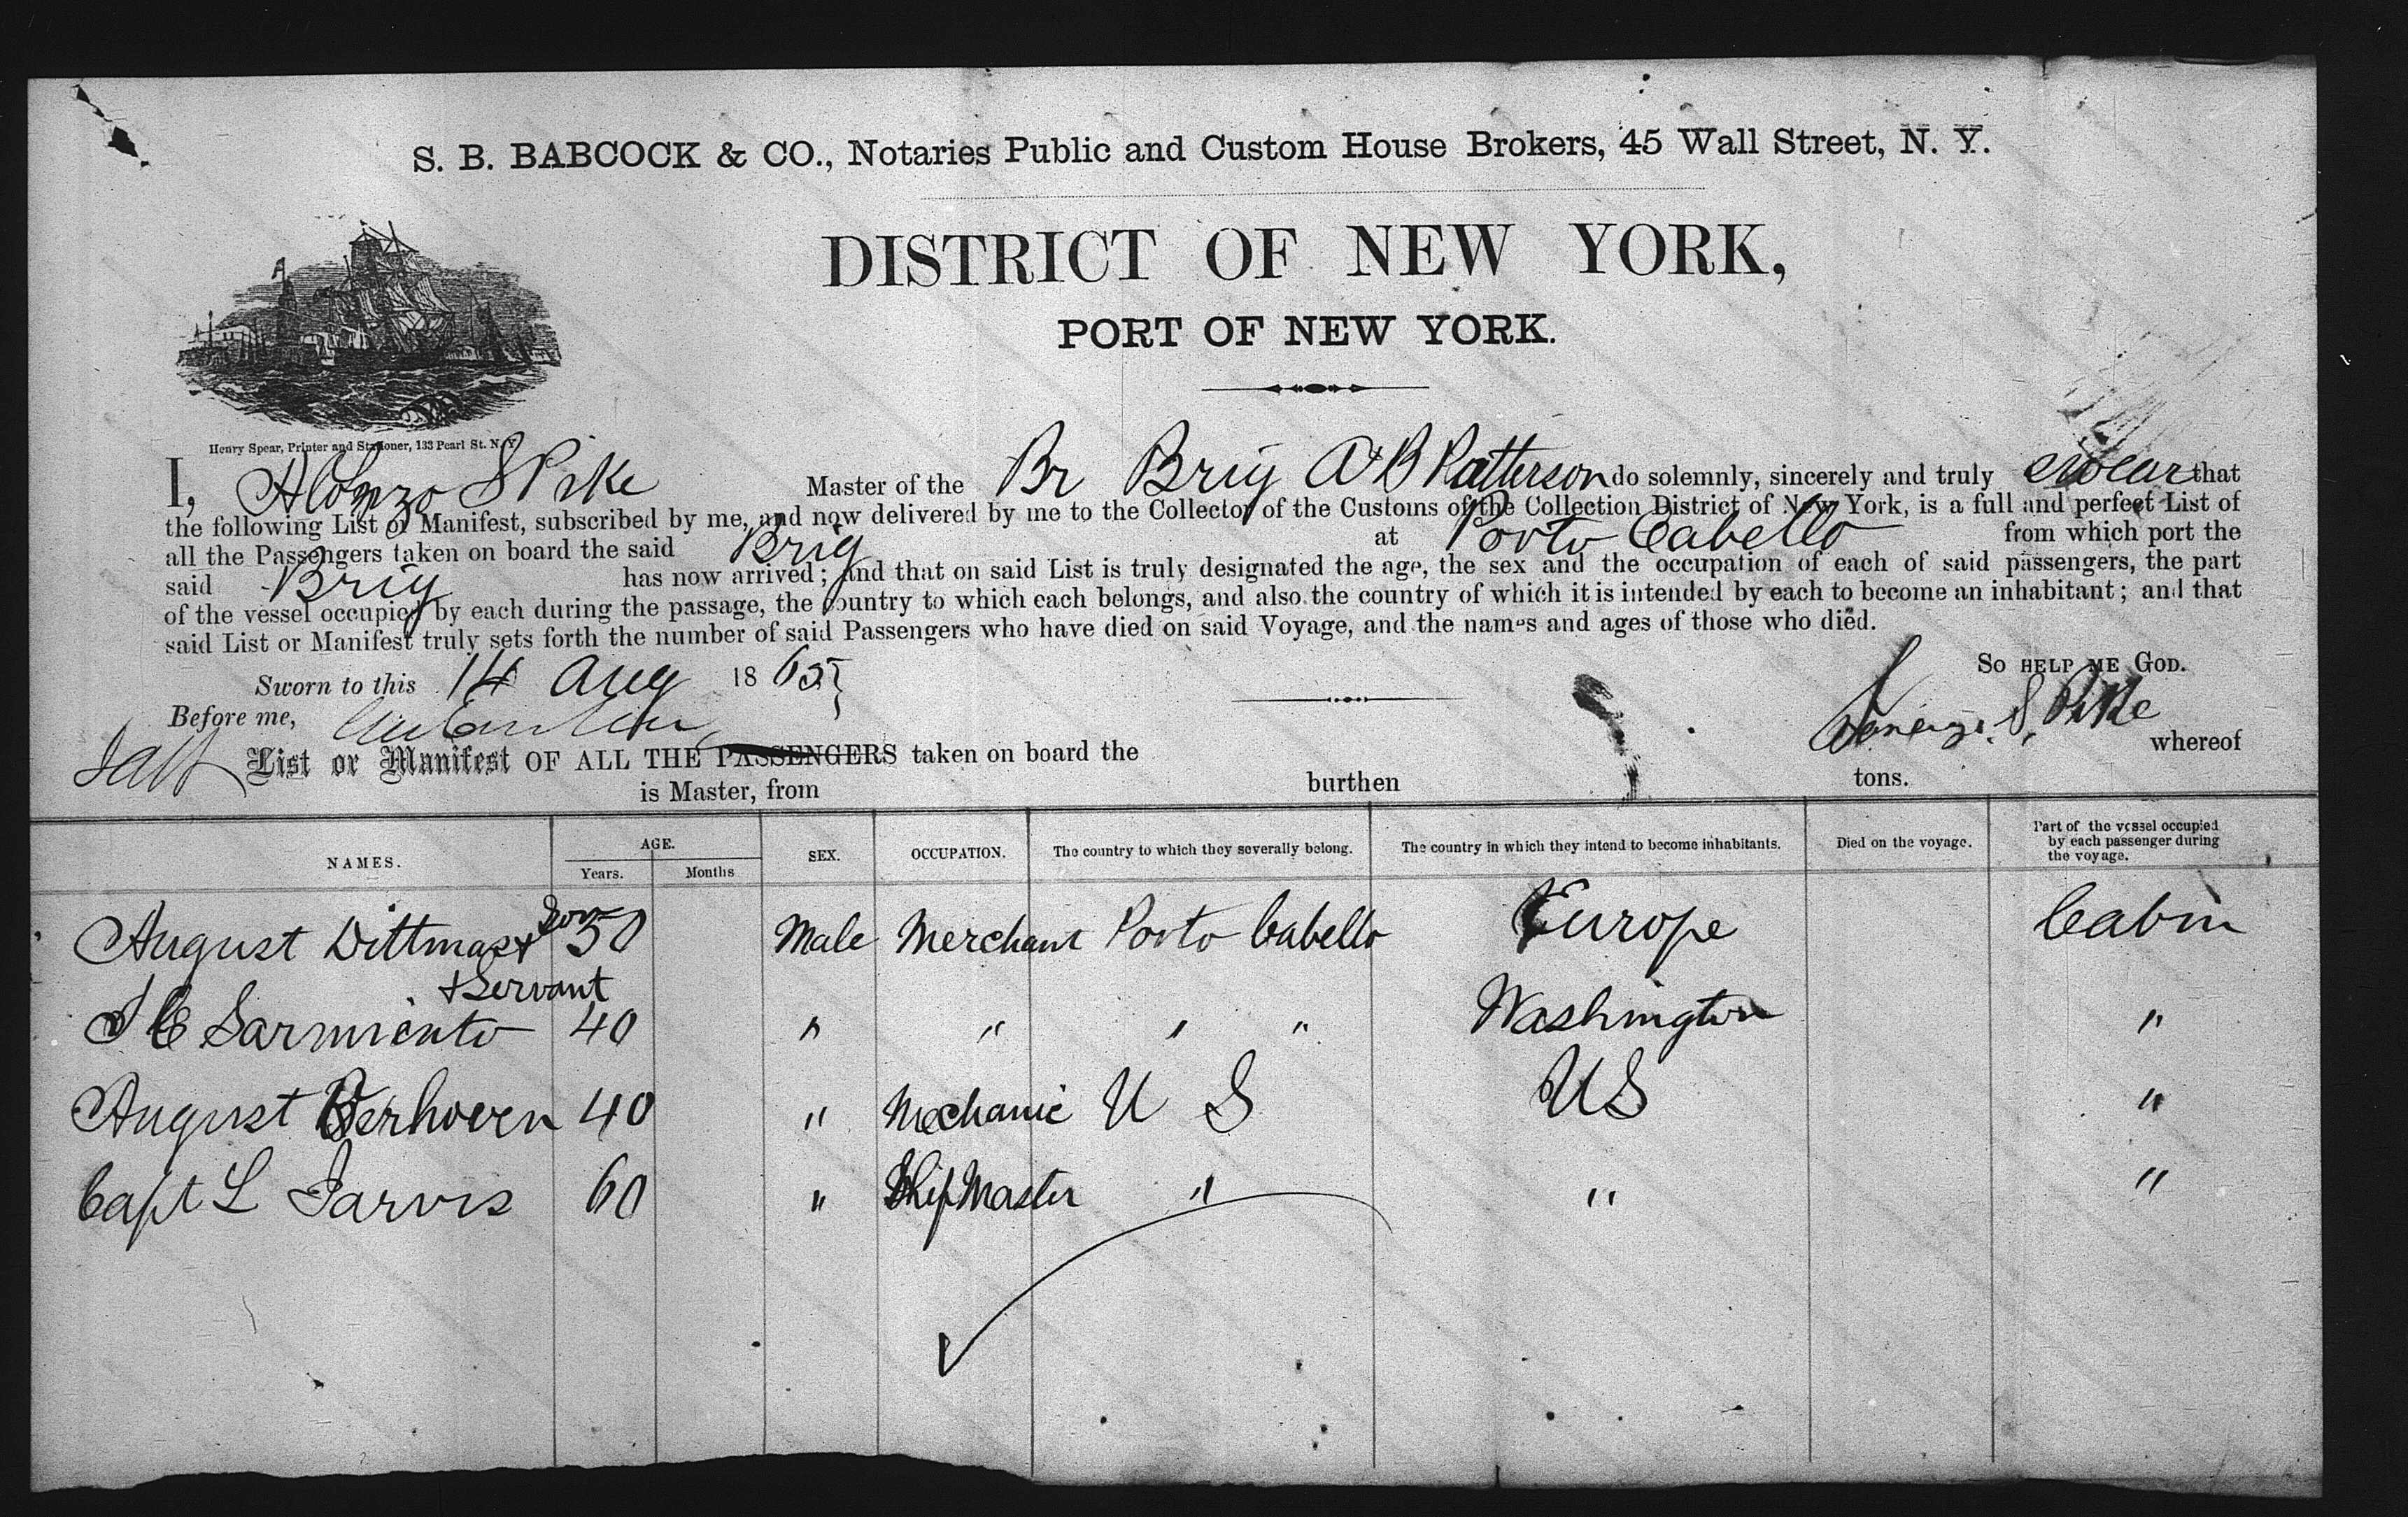 S. B. BABCOCK & CO., Notaries Public and Custom House Brokers, 45 Wall Street, N. Y.
DISTRICT OF NEW YORK,
PORT OF NEW YORK.
Henry Spear, Printer and Stationer, 133 Pearl St. N. Y.
I, Alonzo S Pike Master of the Br Brig A B Patterson do solemnly, sincerely and truly swear that
the following List or Manifest, subscribed by me, and now delivered by me to the Collector of the Customs of the Collection District of New York, is a full and perfect List of
all the Passengers taken on board the said Brig at Porto Cabello from which port the
said Brig has now arrived; and that on said List is truly designated the age, the sex and the occupation of each of said passengers, the part
of the vessel occupied by each during the passage, the country to which each belongs, and also the country of which it is intended by each to become an inhabitant; and that
said List or Manifest truly sets forth the number of said Passengers who have died on said Voyage, and the names and ages of those who died.
So help me God.
Sworn to this 14 Aug 1865
Before me,
S. Pike
List or Manifest OF ALL THE PASSENGERS taken on board the whereof
is Master, from burthen tons.
NAMES. AGE. Years. Months SEX. OCCUPATION. The country to which they severally belong. The country in which they intend to become inhabitants. Died on the voyage. Part of the vessel occupied by each passenger during the voyage.
August Dittmas + Son 50 Male Merchant Porto Cabello Europe Cabin
+ Servant
Sarmiento 40 " " " " Washington "
August Verhoeen 40 " Mechanic U S U S "
Capt L Jarvis 60 " Ship Master " " "